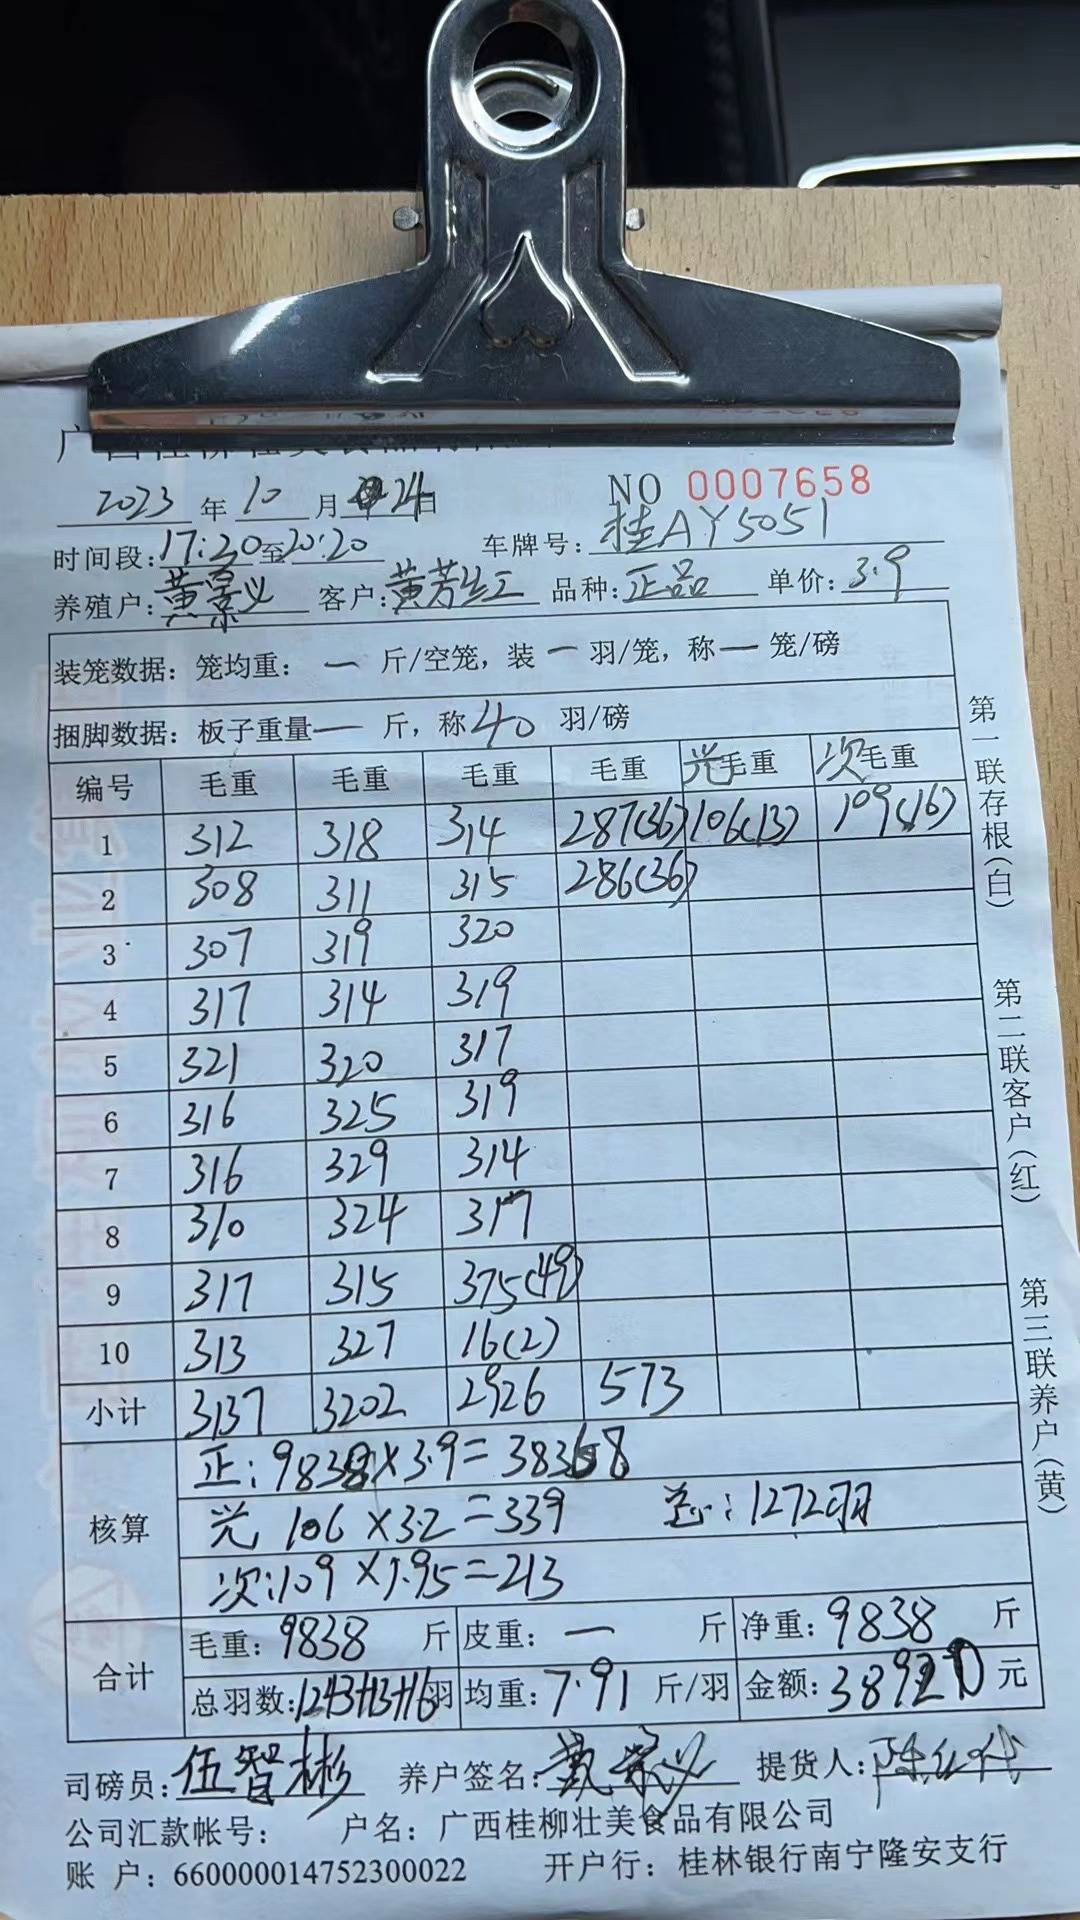 NO 0007658
2023 年 10 月 24 日
时间段: 17:20 至 20:20 车牌号: 桂AY5051
养殖户: 黄景义 客户: 黄芳红 品种: 正品 单价: 3.9
装笼数据: 笼均重: 一 斤/空笼, 装 一 羽/笼, 称 一 笼/磅
捆脚数据: 板子重量 一 斤, 称 40 羽/磅
编号 毛重 毛重 毛重 毛重 光毛重 次毛重
1 312 318 314 287(36) 106(13) 109(16)
2 308 311 315 286(36)
3 307 319 320
4 317 314 319
5 321 320 317
6 316 325 319
7 316 329 314
8 310 324 317
9 317 315 375(49)
10 313 327 16(2)
小计 3137 3202 2926 573
核算
正: 9838×3.9=38368
光 106×3.2=339 总: 1272羽
次: 109×1.95=213
合计
毛重: 9838 斤 皮重: 一 斤 净重: 9838 斤
总羽数: 1243+13+16 羽 均重: 7.91 斤/羽 金额: 38920 元
司磅员: 伍智彬 养户签名: 提货人:
公司汇款帐号: 户名: 广西桂柳壮美食品有限公司
账 户: 660000014752300022 开户行: 桂林银行南宁隆安支行
第一联存根(白)
第二联客户(红)
第三联养户(黄)